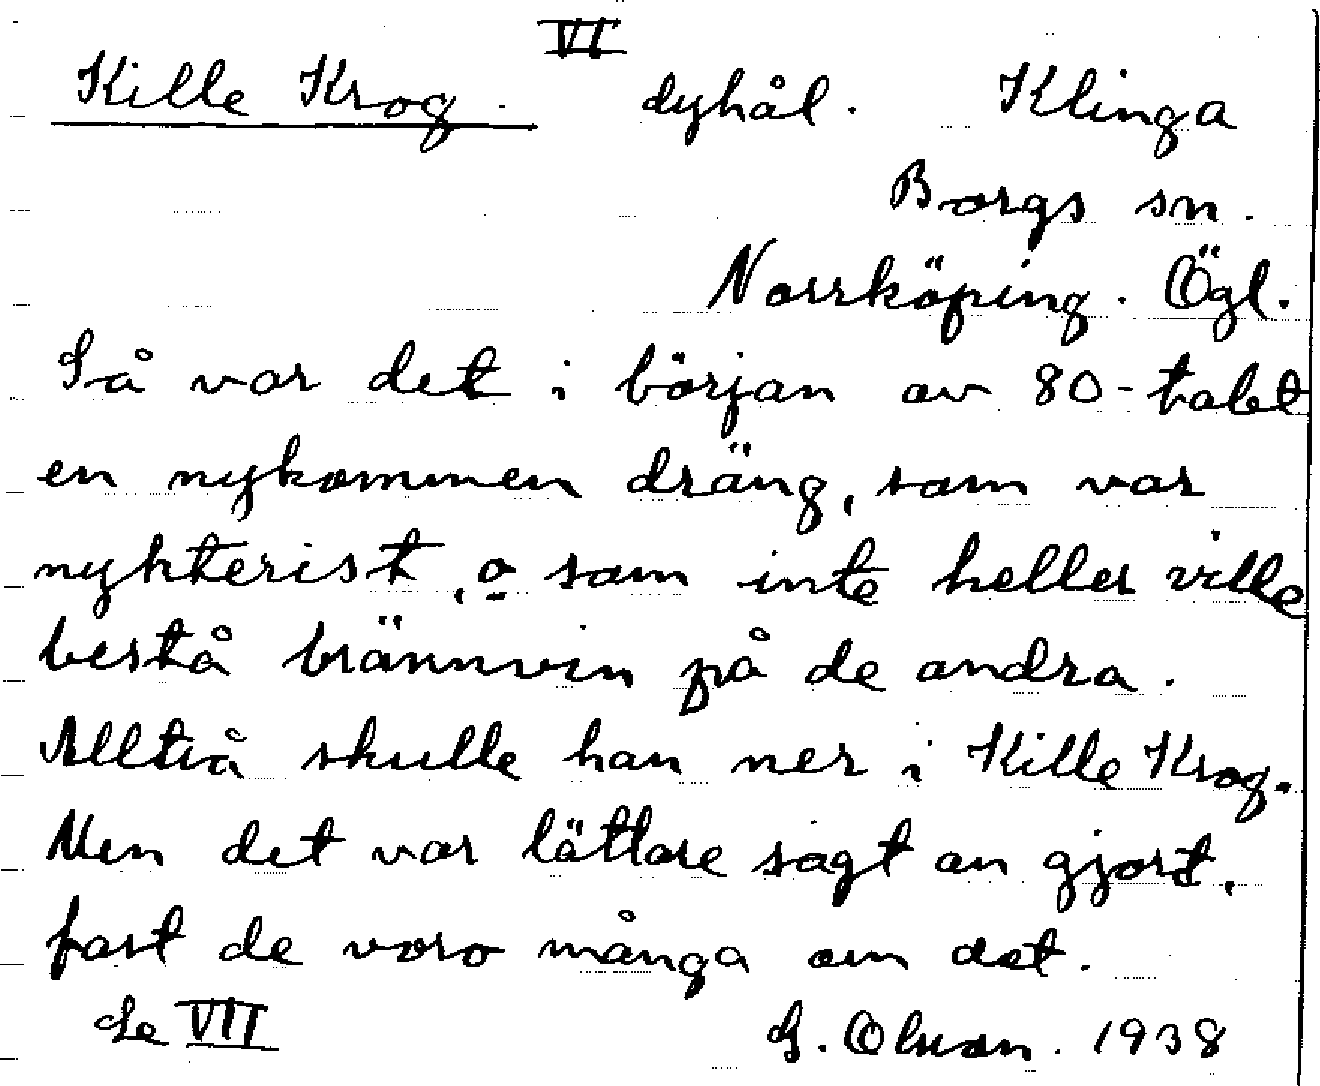 VI
Kille Krog. dyhål. Klinga
Borgs sn.
Norrköping. Ögl.
Så var det i början av 80-talet
en nykommen dräng, som var
nykterist, o som inte heller ville
bestå brännvin på de andra.
Alltså skulle han ner i Kille Krog.
Men det var lättare sagt än gjort,
fast de voro många om det.
Se VII G. Olsson. 1938